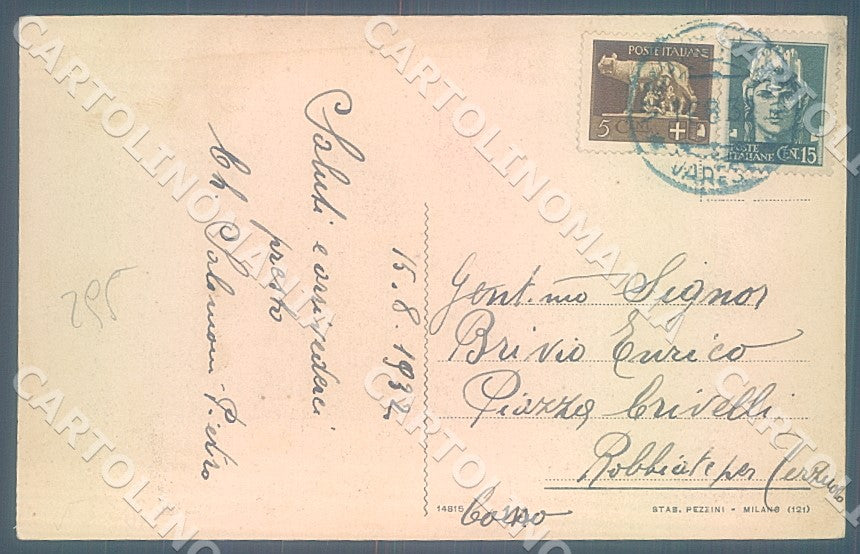 15.8.1932
Saluti e arrivederci
presto
Salomoni Pietro
295
POSTE ITALIANE
5 CENT.
POSTE
ITALIANE CEN. 15
VARESE
Gent.mo Signor
Brivio Enrico
Piazza Crivelli
Robbiate per
Como
14815
STAB. PEZZINI - MILANO (121)
CARTOLINOMANIA
CARTOLINOMANIA
CARTOLINOMANIA
CARTOLINOMANIA